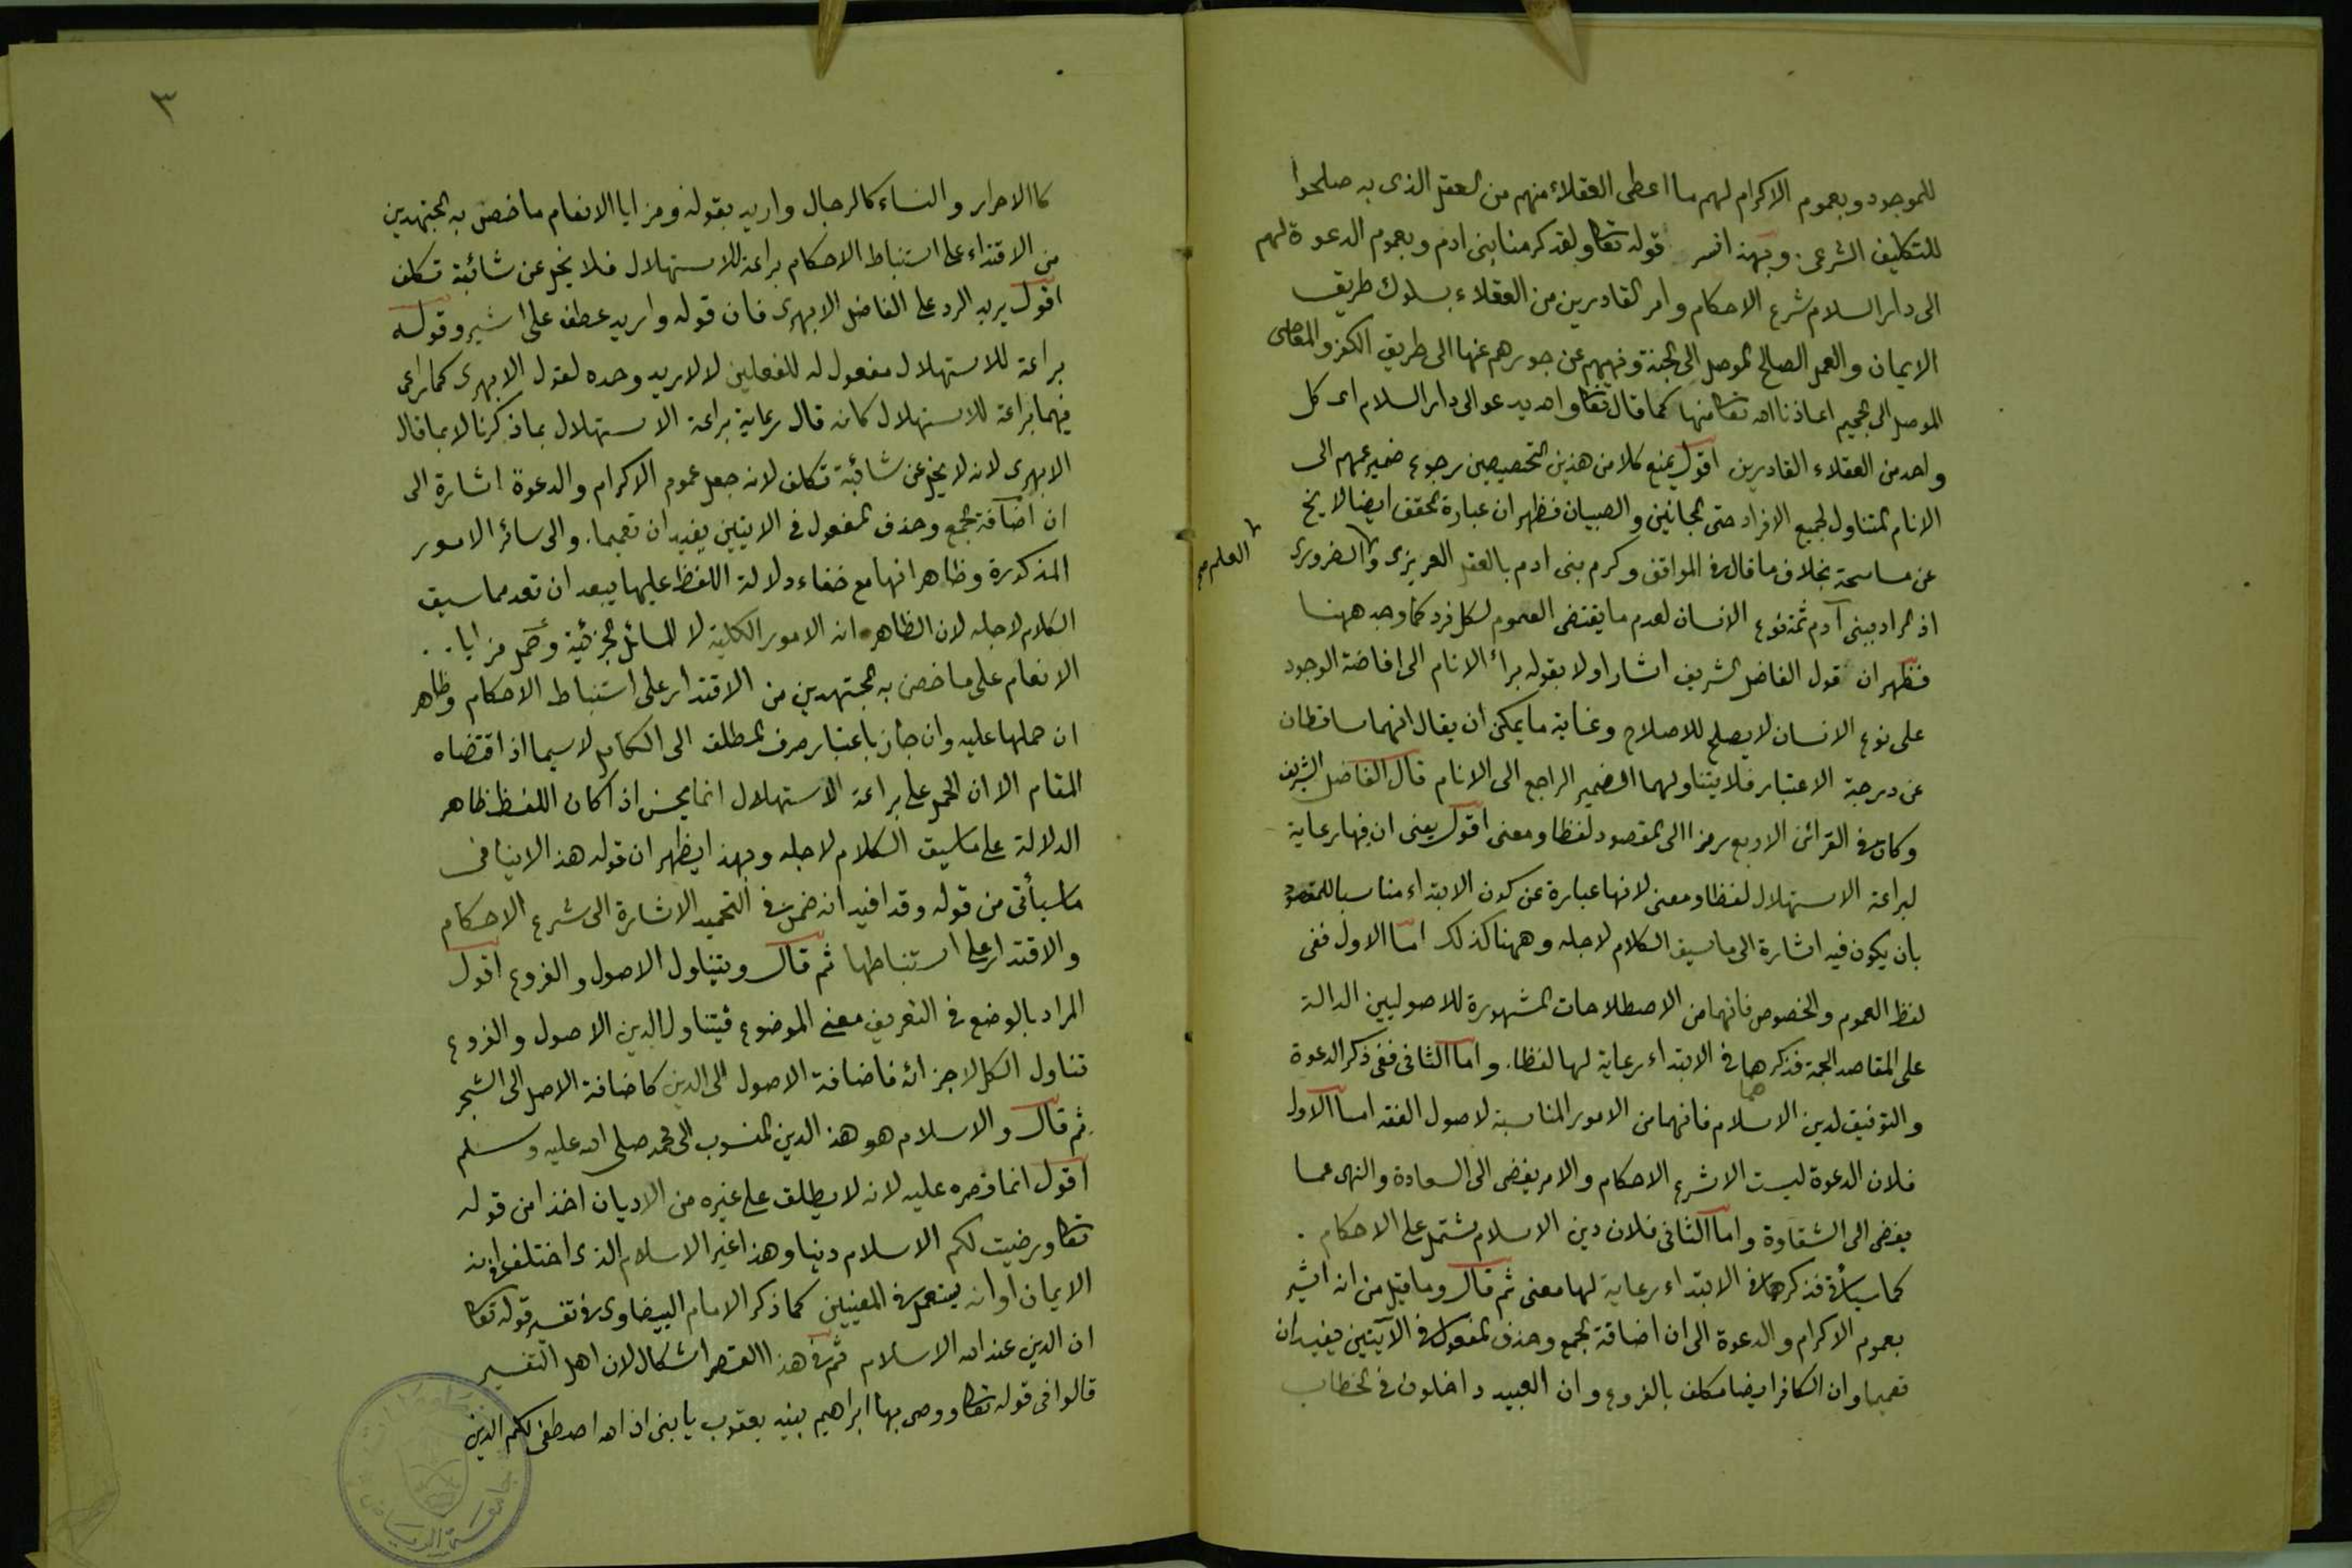 للموجود وبعموم الاكرام لهم ما اعطى العقلاء منهم من العقل الذى به صلحوا
للتكليف الشرعى. وبهذا فسر قوله تعا ولقد كرمنا بنى ادم وبعموم الدعوة لهم
الى دار السلام شرع الاحكام وامر القادرين من العقلاء بسلوك طريق
الايمان والعمل الصالح الموصل الى الجنة ونهيهم عن جورهم عنها الى طريق الكفر والمعاصى
الموصل الى الجحيم اعاذنا الله تعا منها كما قال تعا والله يدعو الى دار السلام اى كل
واحد من العقلاء القادرين اقول يمنع كلا من هذين التخصيصين رجوع ضمير عمهم الى
الانام المتناول لجميع الافراد حتى المجانين والصبيان فظهر ان عبارة المحقق ايضا لا يخ
عن مسامحة بخلاف ما قال فى المواقف وكرم بنى ادم بالعقل الغريزى والضرورى
العلم صح
اذ المراد ببنى آدم ثمة نوع الانسان لعدم ما يقتضى العموم لكل فرد كما وجد ههنا
فظهر ان قول الفاضل الشريف اشار اولا بقوله برأ الانام الى افاضة الوجود
على نوع الانسان لا يصلح للاصلاح وغاية ما يمكن ان يقال انهما ساقطان
عن درجة الاعتبار فلا يتناولهما الضمير الراجع الى الانام قال الفاضل الشريف
وكان فى القرائن الاربع رمزا الى المقصود لفظا ومعنى اقول يعنى ان فيها رعاية
لبراعة الاستهلال لفظا ومعنى لانها عبارة عن كون الابتداء مناسبا للمقصود
بان يكون فيه اشارة الى ما سيق الكلام لاجله وههنا كذلك اما الاول ففى
لفظ العموم والخصوص فانهما من الاصطلاحات المشهورة للاصوليين الدالة
على المقاصد الجمة فذكرهما فى الابتداء رعاية لها لفظا. واما الثانى ففى ذكر الدعوة
والتوفيق لدين الاسلام فانهما من الامور المناسبة لاصول الفقه اما الاول
فلان الدعوة ليست الا شرع الاحكام والامر يفضى الى السعادة والنهى عما
يفضى الى الشقاوة واما الثانى فلان دين الاسلام مشتمل على الاحكام.
كما سيأتى فذكرهما فى الابتداء رعاية لها معنى ثم قال وما قيل من انه اشير
بعموم الاكرام والدعوة الى ان اضافة الجمع وحذف المفعول فى الآيتين يفيدان
تعميما وان الكافر ايضا مكلف بالفروع وان العبيد داخلون فى الخطاب
٣
كالاحرار والنساء كالرجال واريد بقوله ومزايا الانعام ما خص به المجتهدين
من الاقتداء على استنباط الاحكام براعة للاستهلال فلا يخلو عن شائبة تكلف
اقول يريد الرد على الفاضل الابهرى فان قوله واريد عطف على اشير وقوله
براعة للاستهلال مفعول له للفعلين لا لاريد وحده لقول الابهرى كما راعى
فيهما براعة للاستهلال كانه قال رعاية براعة الاستهلال بما ذكرنا لا بما قال
الابهرى لانه لا يخلو عن شائبة تكلف لانه جعل عموم الاكرام والدعوة اشارة الى
ان اضافة الجمع وحذف المفعول فى الايتين يفيدان تعميما. والى سائر الامور
المذكورة وظاهر انها مع خفاء دلالة اللفظ عليها يبعد ان تعد مما سيق
الكلام لاجله لان الظاهر انه الامور الكلية لا المسائل الجزئية وحمل مزايا..
الانعام على ما خص به المجتهدين من الاقتدار على استنباط الاحكام وظاهر
ان حملها عليه وان جاز باعتبار صرف المطلق الى الكامل لا سيما اذا اقتضاه
المقام الا ان الحمل على براعة الاستهلال انما يحسن اذا كان اللفظ ظاهر
الدلالة على ما سيق الكلام لاجله وبهذا يظهر ان قوله هذا لا ينافى
ما سيأتى من قوله وقد افيد انه ضمن فى التحميد الاشارة الى شرع الاحكام
والاقتدار على استنباطها ثم قال ويتناول الاصول والفروع اقول
المراد بالوضع فى التعريف معنى الموضوع فيتناول الدين الاصول والفروع
تناول الكل لاجزائه فاضافة الاصول الى الدين كاضافة الاصل الى الشجر
ثم قال والاسلام هو هذا الدين المنسوب الى محمد صلى الله عليه وسلم
اقول انما قصره عليه لانه لا يطلق على غيره من الاديان اخذا من قوله
تعا ورضيت لكم الاسلام دينا وهذا غير الاسلام الذى اختلف فى انه
الايمان او انه يستعمل فى المعنيين كما ذكر الامام البيضاوى فى تفسير قوله تعا
ان الدين عند الله الاسلام ثم فى هذا القصر اشكال لان اهل التفسير
قالوا فى قوله تعا ووصى بها ابراهيم بنيه يعقوب يا بنى ان الله اصطفى لكم الدين
جامعة الرياض